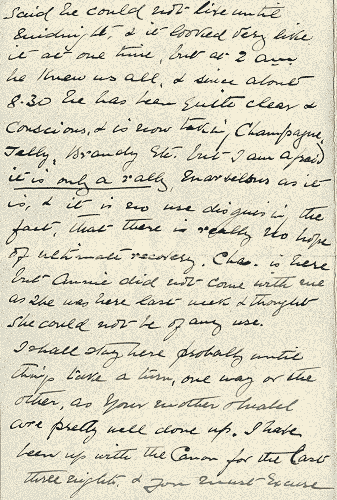 said he could not live until
midnight, & it looked very like
it at one time, but at 2 am
he knew us all, & since about
8.30 he has been quite clear &
conscious, & is now takin, Champagne,
Jelly, Brandy etc. but I am afraid
it is only a rally, marvellous as it
is, & it is no use disguisin, the
fact, that there is really no hope
of ultimate recovery. Chas. is here
but Annie did not come with me
as she was here last week & thought
she could not be of any use.
I shall stay here probably until
things take a turn, one way or the
other, as your mother & Mabel
are pretty well done up. I have
been up with the Canon for the last
three nights. & you must excuse